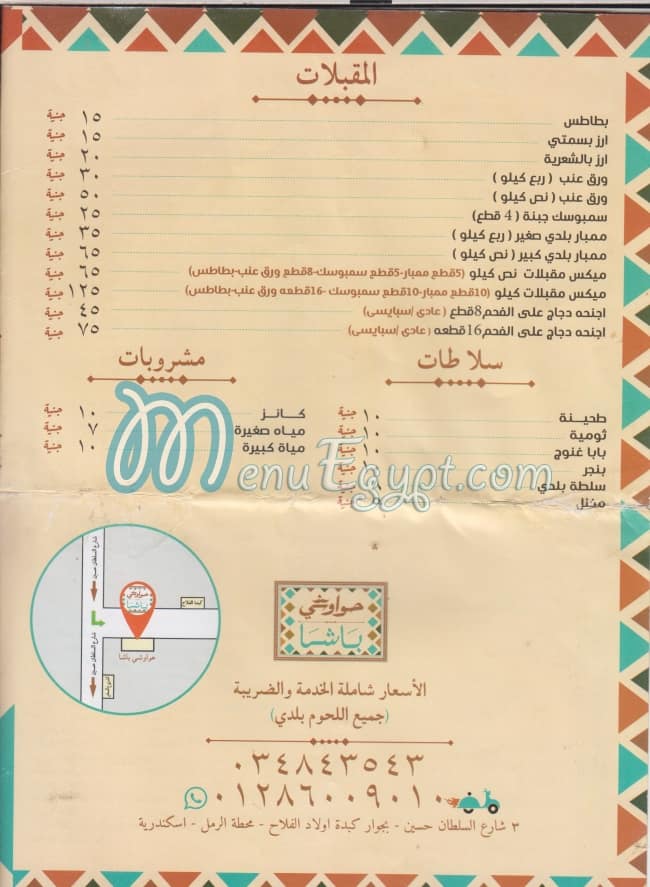 المقبلات
بطاطس ١٥ جنية
ارز بسمتي ١٥ جنية
ارز بالشعرية ٢٠ جنية
ورق عنب ( ربع كيلو ) ٣٠ جنية
ورق عنب ( نص كيلو ) ٥٠ جنية
سمبوسك جبنة ( 4 قطع) ٢٥ جنية
ممبار بلدي صغير ( ربع كيلو ) ٣٥ جنية
ممبار بلدي كبير ( نص كيلو ) ٦٥ جنية
ميكس مقبلات نص كيلو (5قطع ممبار-5قطع سمبوسك-8قطع ورق عنب-بطاطس) ٦٥ جنية
ميكس مقبلات كيلو (10قطع ممبار-10قطع سمبوسك -16قطعه ورق عنب-بطاطس) ١٢٥ جنية
اجنحه دجاج على الفحم8قطع ( عادى /سبايسى) ٤٥ جنية
اجنحه دجاج على الفحم16قطعه ( عادى /سبايسى) ٧٥ جنية
سلاطات
طحينة ١٠ جنية
ثومية ١٠ جنية
بابا غنوج ١٠ جنية
بنجر جنية
سلطة بلدي جنية
مخلل جنية
مشروبات
كانز ١٠ جنية
مياه صغيرة ٧ جنية
مياة كبيرة ١٠ جنية
MenuEgypt.com
شارع السلطان حسين
كبدة الفلاح
حواوشي
باشا
حواوشي باشا
شارع السلطان حسين
حواوشي
باشا
الأسعار شاملة الخدمة والضريبة
(جميع اللحوم بلدي)
٠٣٤٨٤٣٥٤٣
٠١٢٨٦٠٠٩٠١٠
٣ شارع السلطان حسين - بجوار كبدة اولاد الفلاح - محطة الرمل - اسكندرية